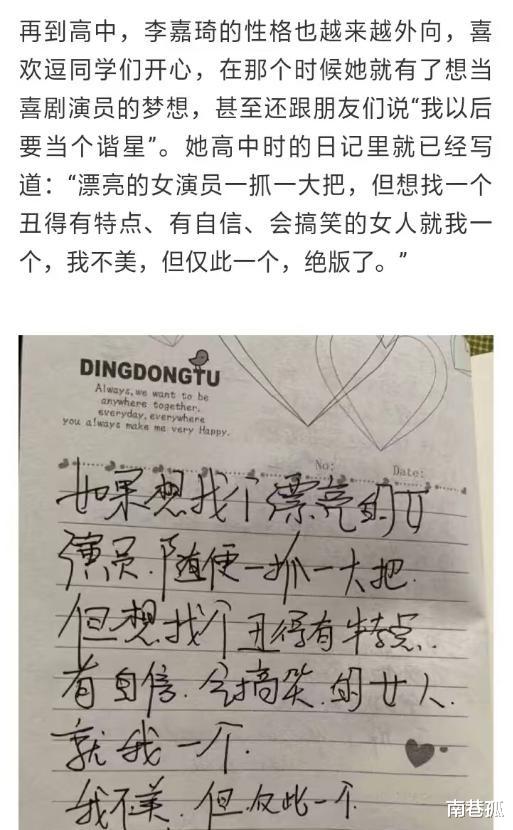 再到高中，李嘉琦的性格也越来越外向，喜
欢逗同学们开心，在那个时候她就有了想当
喜剧演员的梦想，甚至还跟朋友们说“我以后
要当个谐星”。她高中时的日记里就已经写
道：“漂亮的女演员一抓一大把，但想找一个
丑得有特点、有自信、会搞笑的女人就我一
个，我不美，但仅此一个，绝版了。”
DINGDONGTU
Always,we want to be
anywhere together.
everyday,everywhere
you always make me very Happy.
No: Date:
如果想找个漂亮的女
演员.随便一抓一大把.
但想找个丑得有特点.
有自信.会搞笑.的女人.
就我一个.
我不美.但.仅此一个.
南巷孤